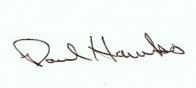 Paul Hawks